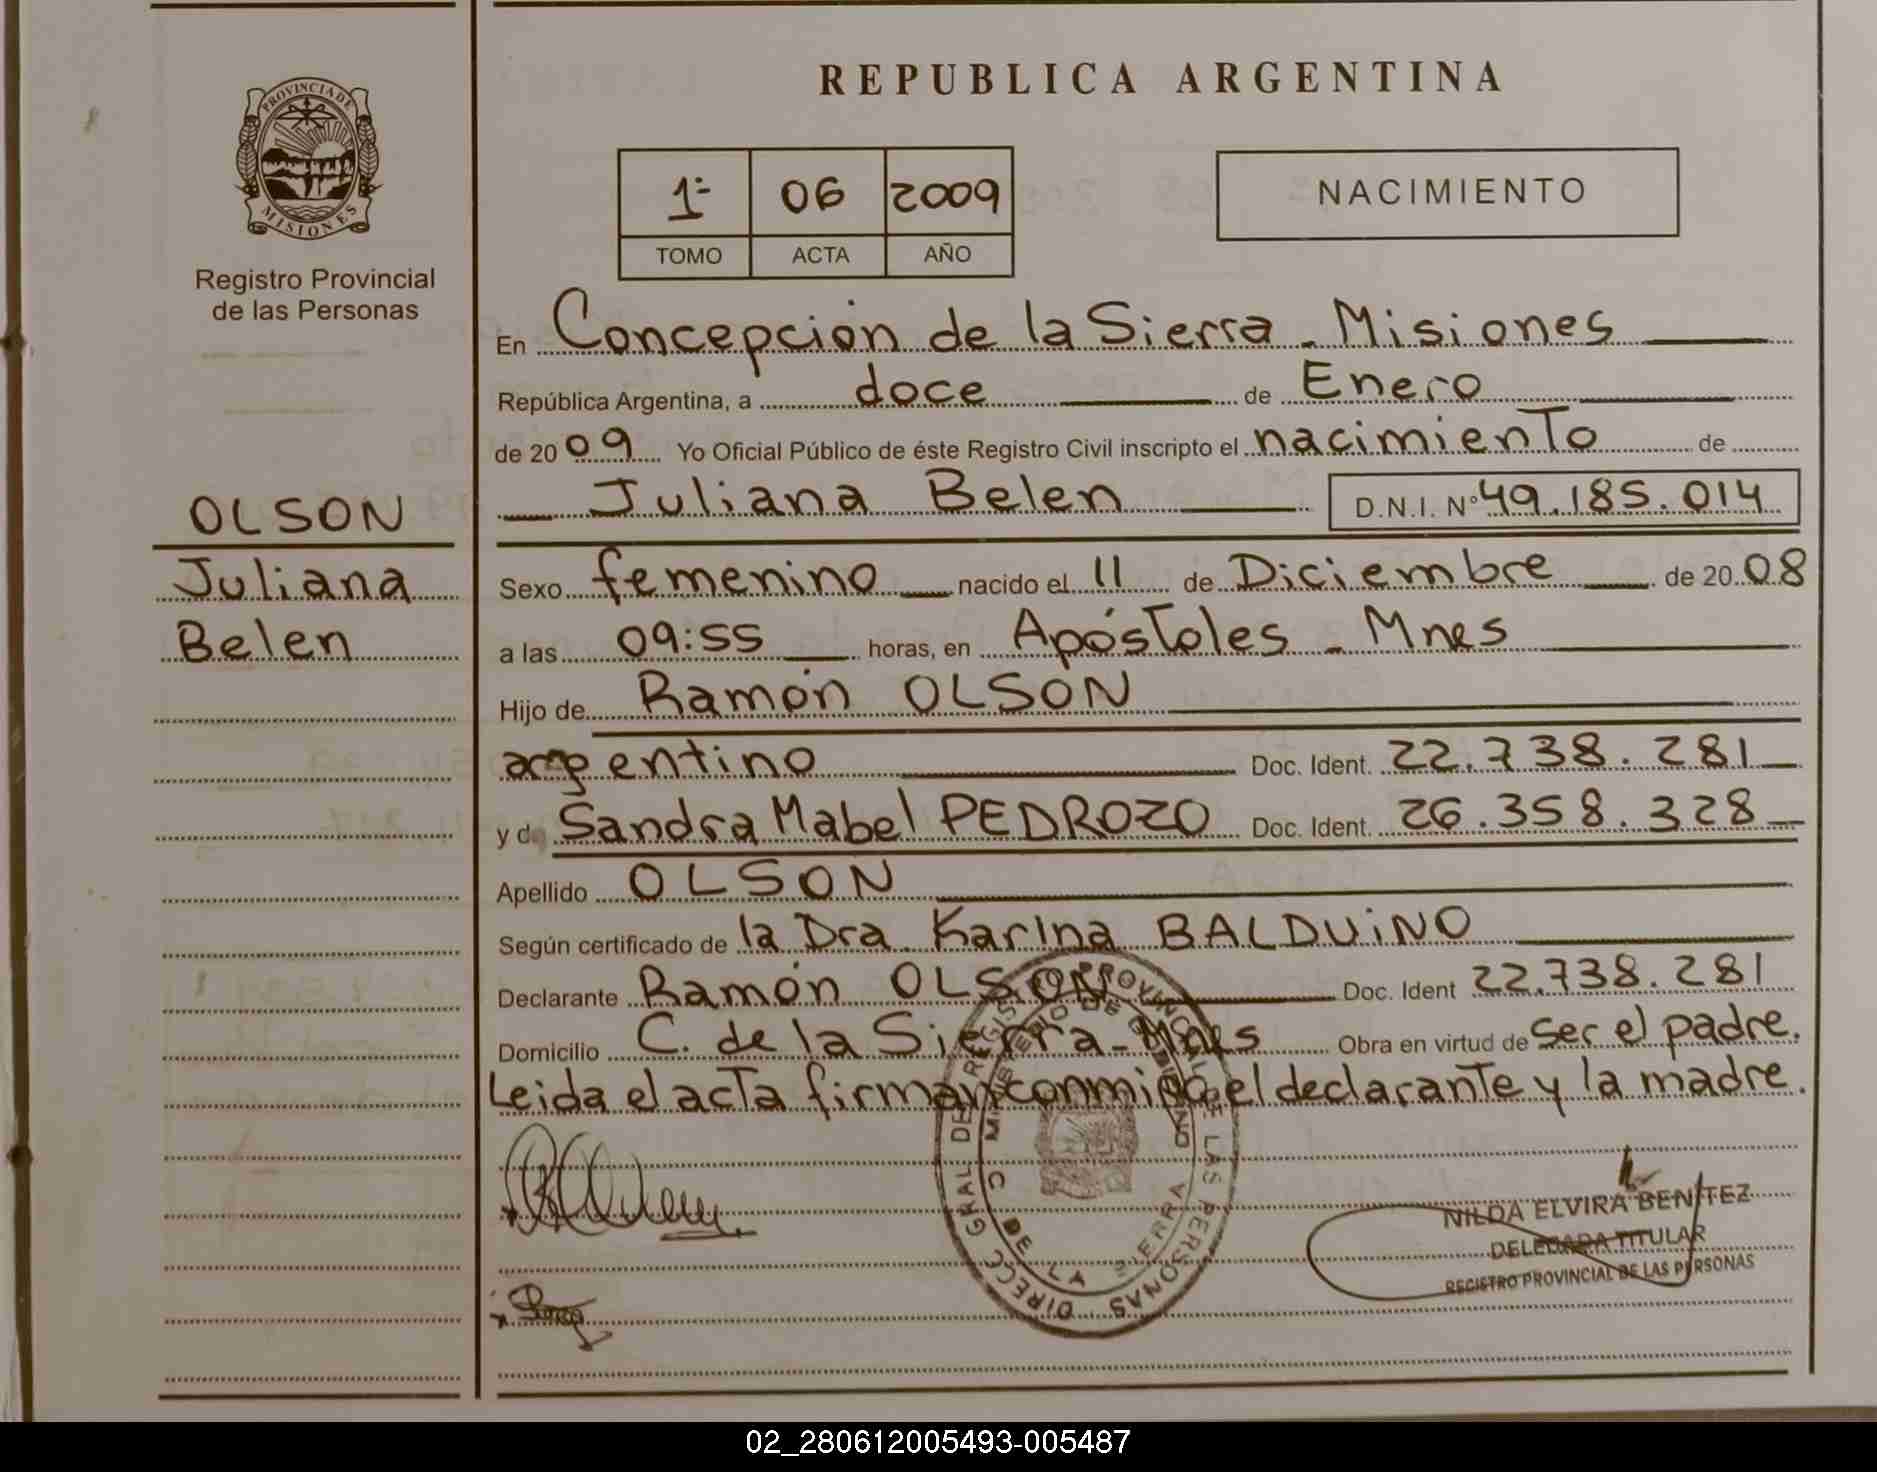 PROVINCIA DE
MISIONES
Registro Provincial
de las Personas
OLSON
Juliana
Belen
REPUBLICA ARGENTINA
1º 06 2009
TOMO ACTA AÑO
NACIMIENTO
En Concepción de la Sierra - Misiones
República Argentina, a doce de Enero
de 2009 Yo Oficial Público de éste Registro Civil inscripto el nacimiento de
Juliana Belen D.N.I. Nº 49.185.014
Sexo femenino nacido el 11 de Diciembre de 2008
a las 09:55 horas, en Apóstoles - Mnes
Hijo de Ramón OLSON
argentino Doc. Ident. 22.738.281
y de Sandra Mabel PEDROZO Doc. Ident. 26.358.328
Apellido OLSON
Según certificado de la Dra Karina BALDUiNO
Declarante Ramón OLSON Doc. Ident 22.738.281
Domicilio C. de la Sierra - Mnes Obra en virtud de ser el padre.
Leida el acta firman conmigo el declarante y la madre.
DIRECC GRAL DE REGIST PROVINCIAL DE LAS PERSONAS
MINISTERIO DE GOBIERNO
C DE LA SIERRA
NILDA ELVIRA BENITEZ
DELEGADA TITULAR
REGISTRO PROVINCIAL DE LAS PERSONAS
02_280612005493-005487